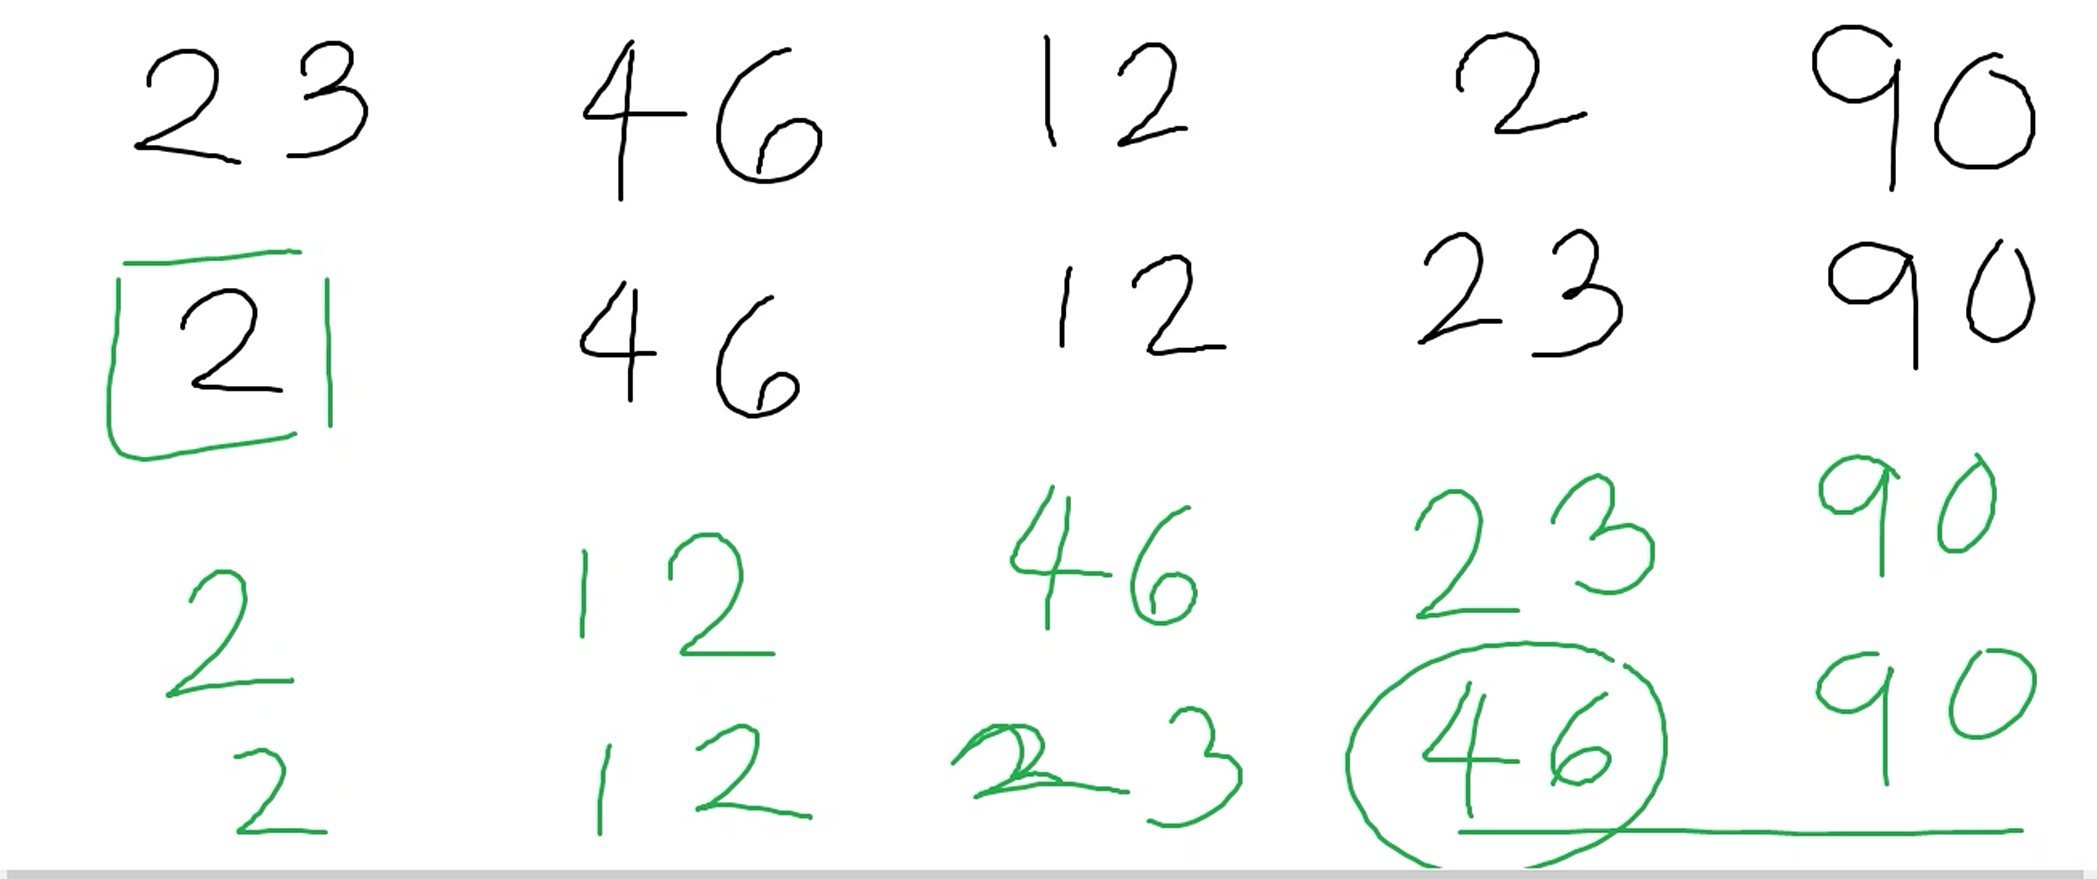 23 46 12 2 90
2 46 12 23 90
2 12 46 23 90
2 12 23 46 90